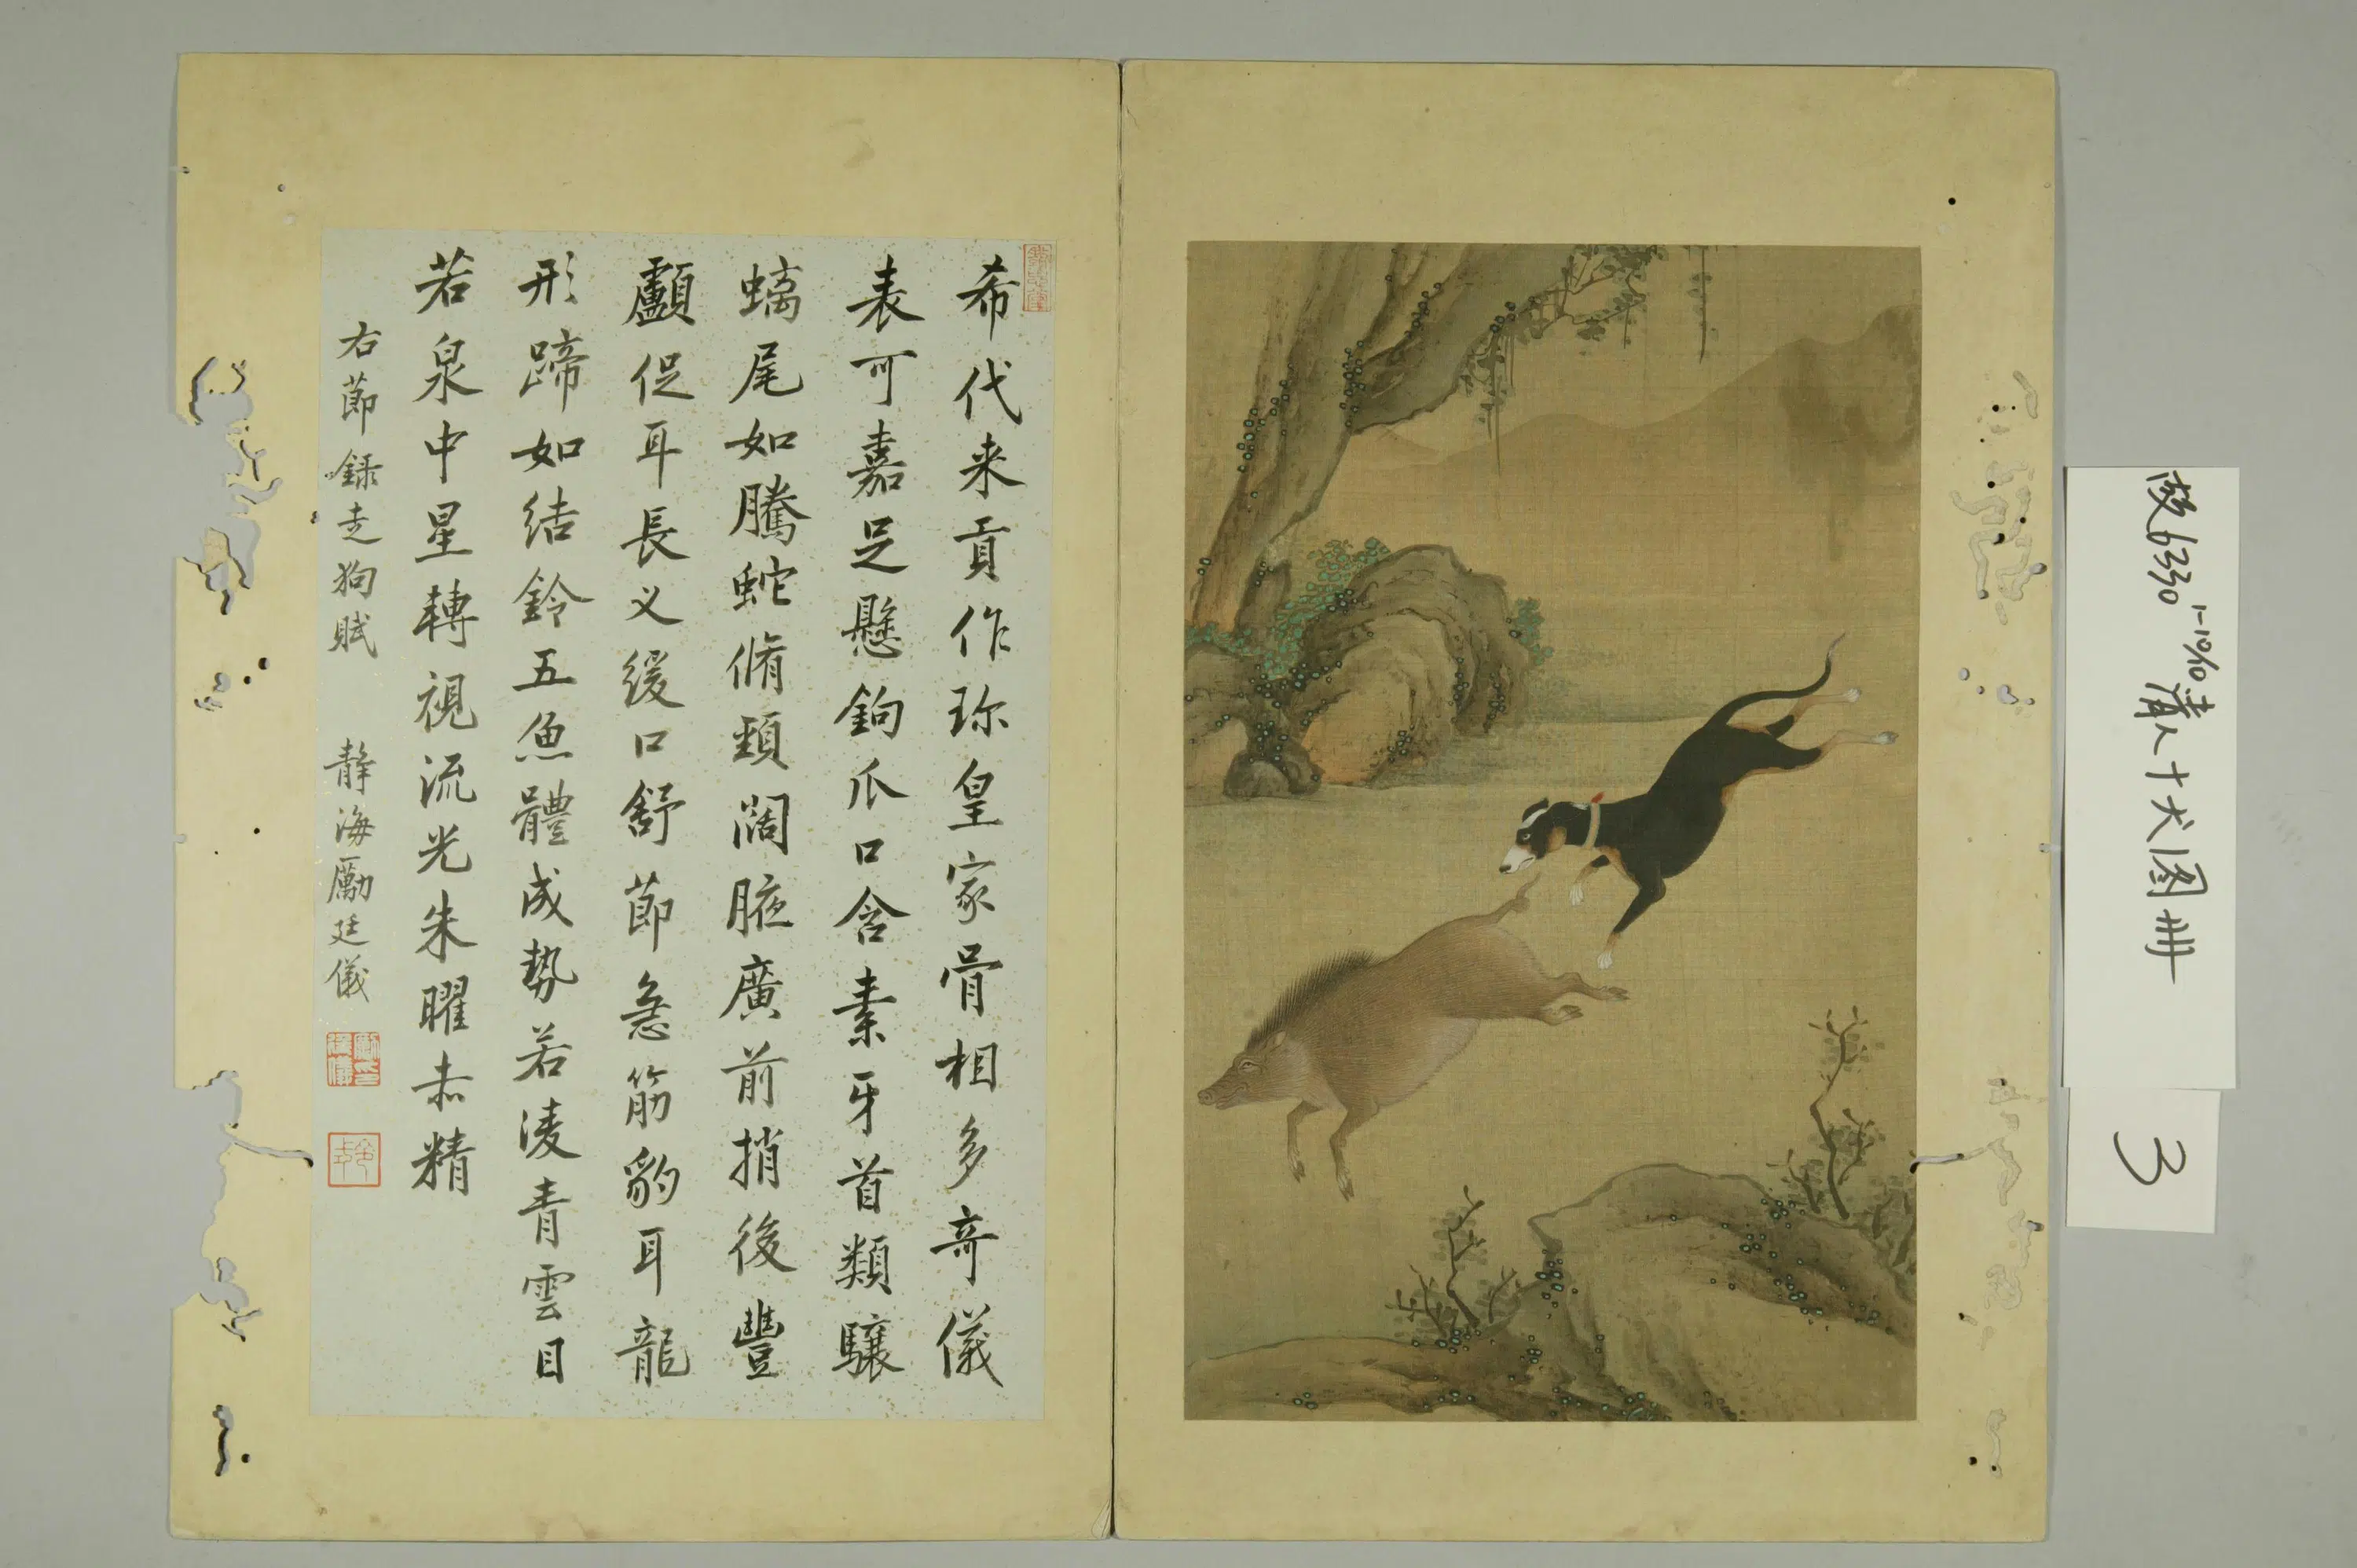 希代来貢作珎皇家骨相多竒儀
表可嘉足懸鉤爪口含素牙首類驤
螭尾如騰蛇脩頸闊腋廣前捎後豐
顱促耳長义緩口舒節急筋豹耳龍
形蹄如結鈴五魚體成勢若淩青雲目
若泉中星轉視流光朱曜赤精
右節録走狗賦 静海勵廷儀
故6330 1-10/10 清人十犬图册
3